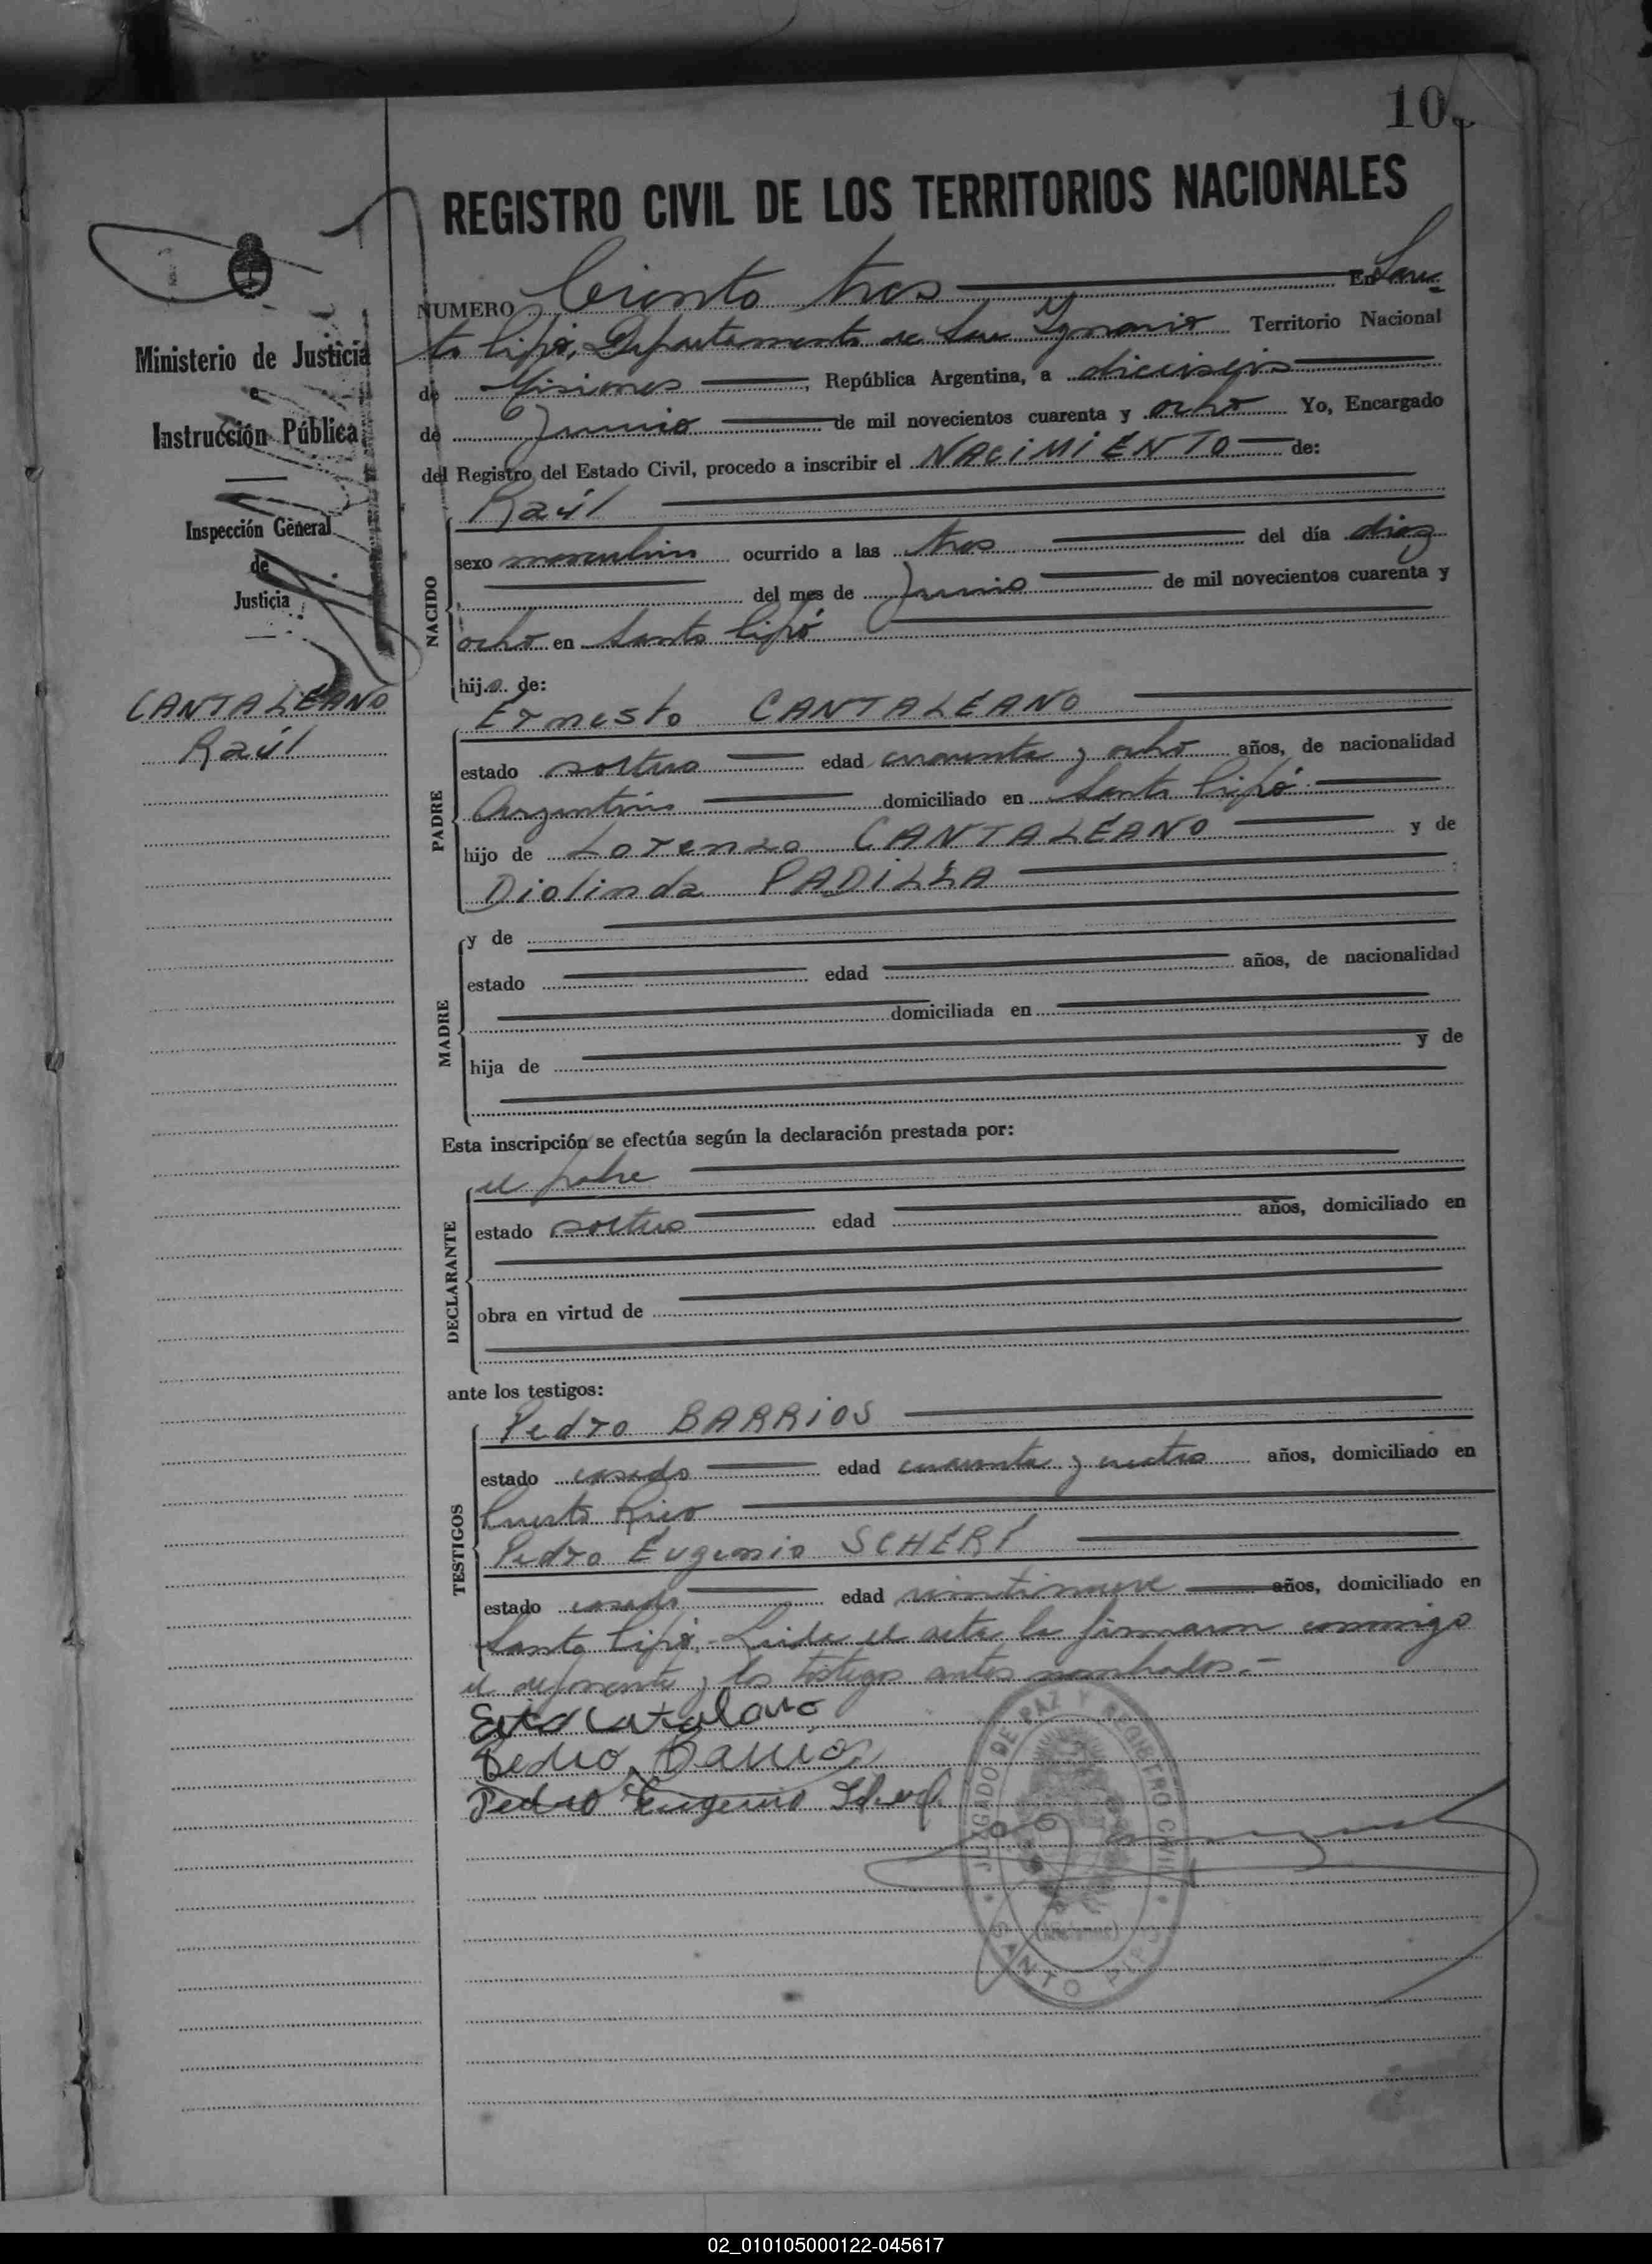 10
REGISTRO CIVIL DE LOS TERRITORIOS NACIONALES
NUMERO Ciento tres En San
to Pipó, Departamento de San Ygnacio Territorio Nacional
de Misiones, República Argentina, a dieciseis
de Junio de mil novecientos cuarenta y ocho Yo, Encargado
del Registro del Estado Civil, procedo a inscribir el NACIMIENTO de:
Raúl
NACIDO
sexo masculino ocurrido a las tres del día diez
del mes de Junio de mil novecientos cuarenta y
ocho en Santo Pipó
hijo de:
Ernesto CANTALEANO
PADRE
estado soltero edad cuarenta y ocho años, de nacionalidad
Argentino domiciliado en Santo Pipó
hijo de Lorenzo CANTALEANO y de
Diolinda PADILLA
MADRE
y de
estado edad años, de nacionalidad
domiciliada en
hija de y de
Esta inscripción se efectúa según la declaración prestada por:
el padre
DECLARANTE
estado soltero edad años, domiciliado en
obra en virtud de
ante los testigos:
Pedro BARRIOS
TESTIGOS
estado casado edad cuarenta y cuatro años, domiciliado en
Puerto Rico
Pedro Eugenio SCHERF
estado casado edad veintinueve años, domiciliado en
Santo Pipó.- Leida el acta la firmaron conmigo
el deponente y los testigos antes nombrados.-
Pedro Barrios
Pedro Eugenio Scherf
JUZGADO DE PAZ Y REGISTRO CIVIL
SANTO PIPO
(Misiones)
Ministerio de Justicia
e
Instrucción Pública
Inspección General
de
Justicia
CANTALEANO
Raúl
02_010105000122-045617